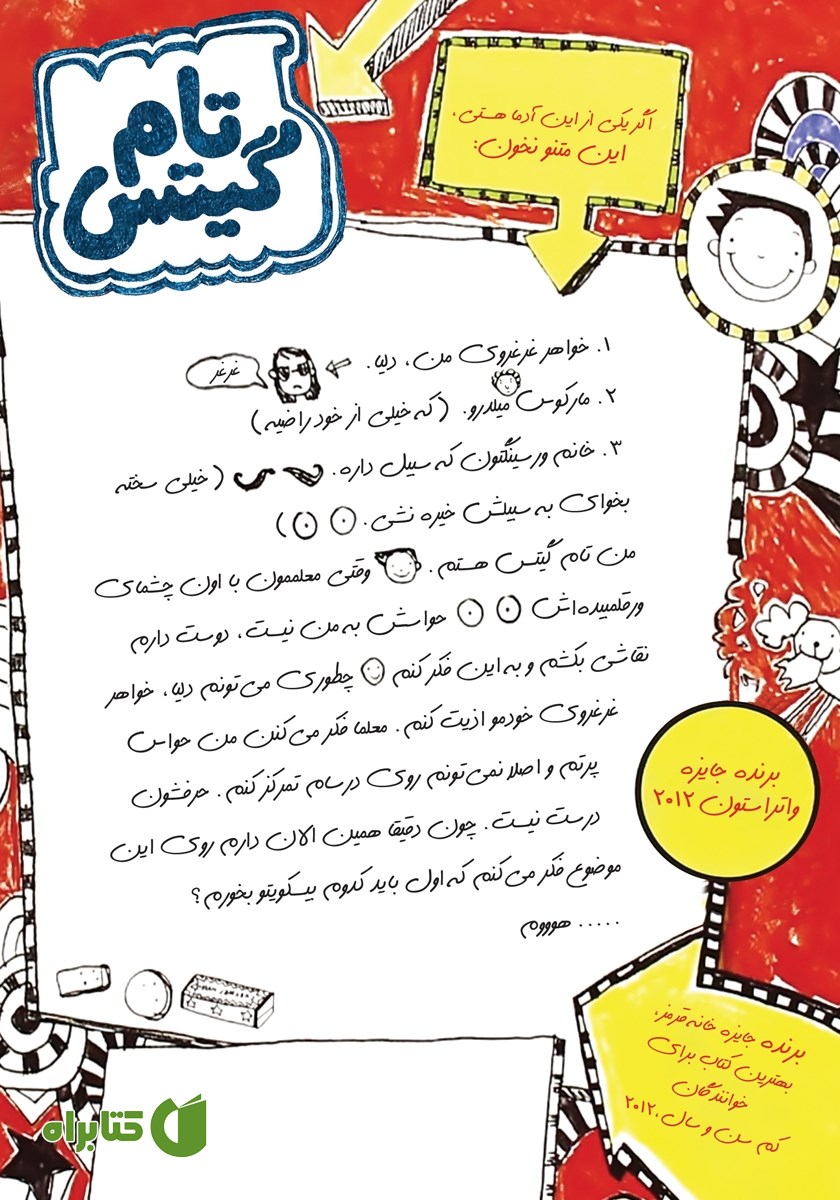 تام
گیتس
اگر یکی از این آدما هستی،
این متنو نخون:
۱. خواهر غرغروی من، دلیا.
غرغر
۲. مارکوس میلدرو. (که خیلی از خود راضیه)
۳. خانم ورسینگتون که سیبیل داره. (خیلی سخته
بخوای به سیبلش خیره نشی. )
من تام گیتس هستم. وقتی معلممون با اون چشمای
ورقلمبیده‌اش حواسش به من نیست، دوست دارم
نقاشی بکشم و به این فکر کنم چطوری می‌تونم دلیا، خواهر
غرغروی خودمو اذیت کنم. معلما فکر می‌کنن من حواس
پرتم و اصلا نمی‌تونم روی درسام تمرکز کنم. حرفشون
درست نیست. چون دقیقا همین الان دارم روی این
موضوع فکر می‌کنم که اول باید کدوم بیسکویتو بخورم؟
..... هوووم
برنده جایزه
واتراستون ۲۰۱۲
برنده جایزه خانه قرمز،
بهترین کتاب برای
خوانندگان
کم سن و سال، ۲۰۱۲
کتابراه